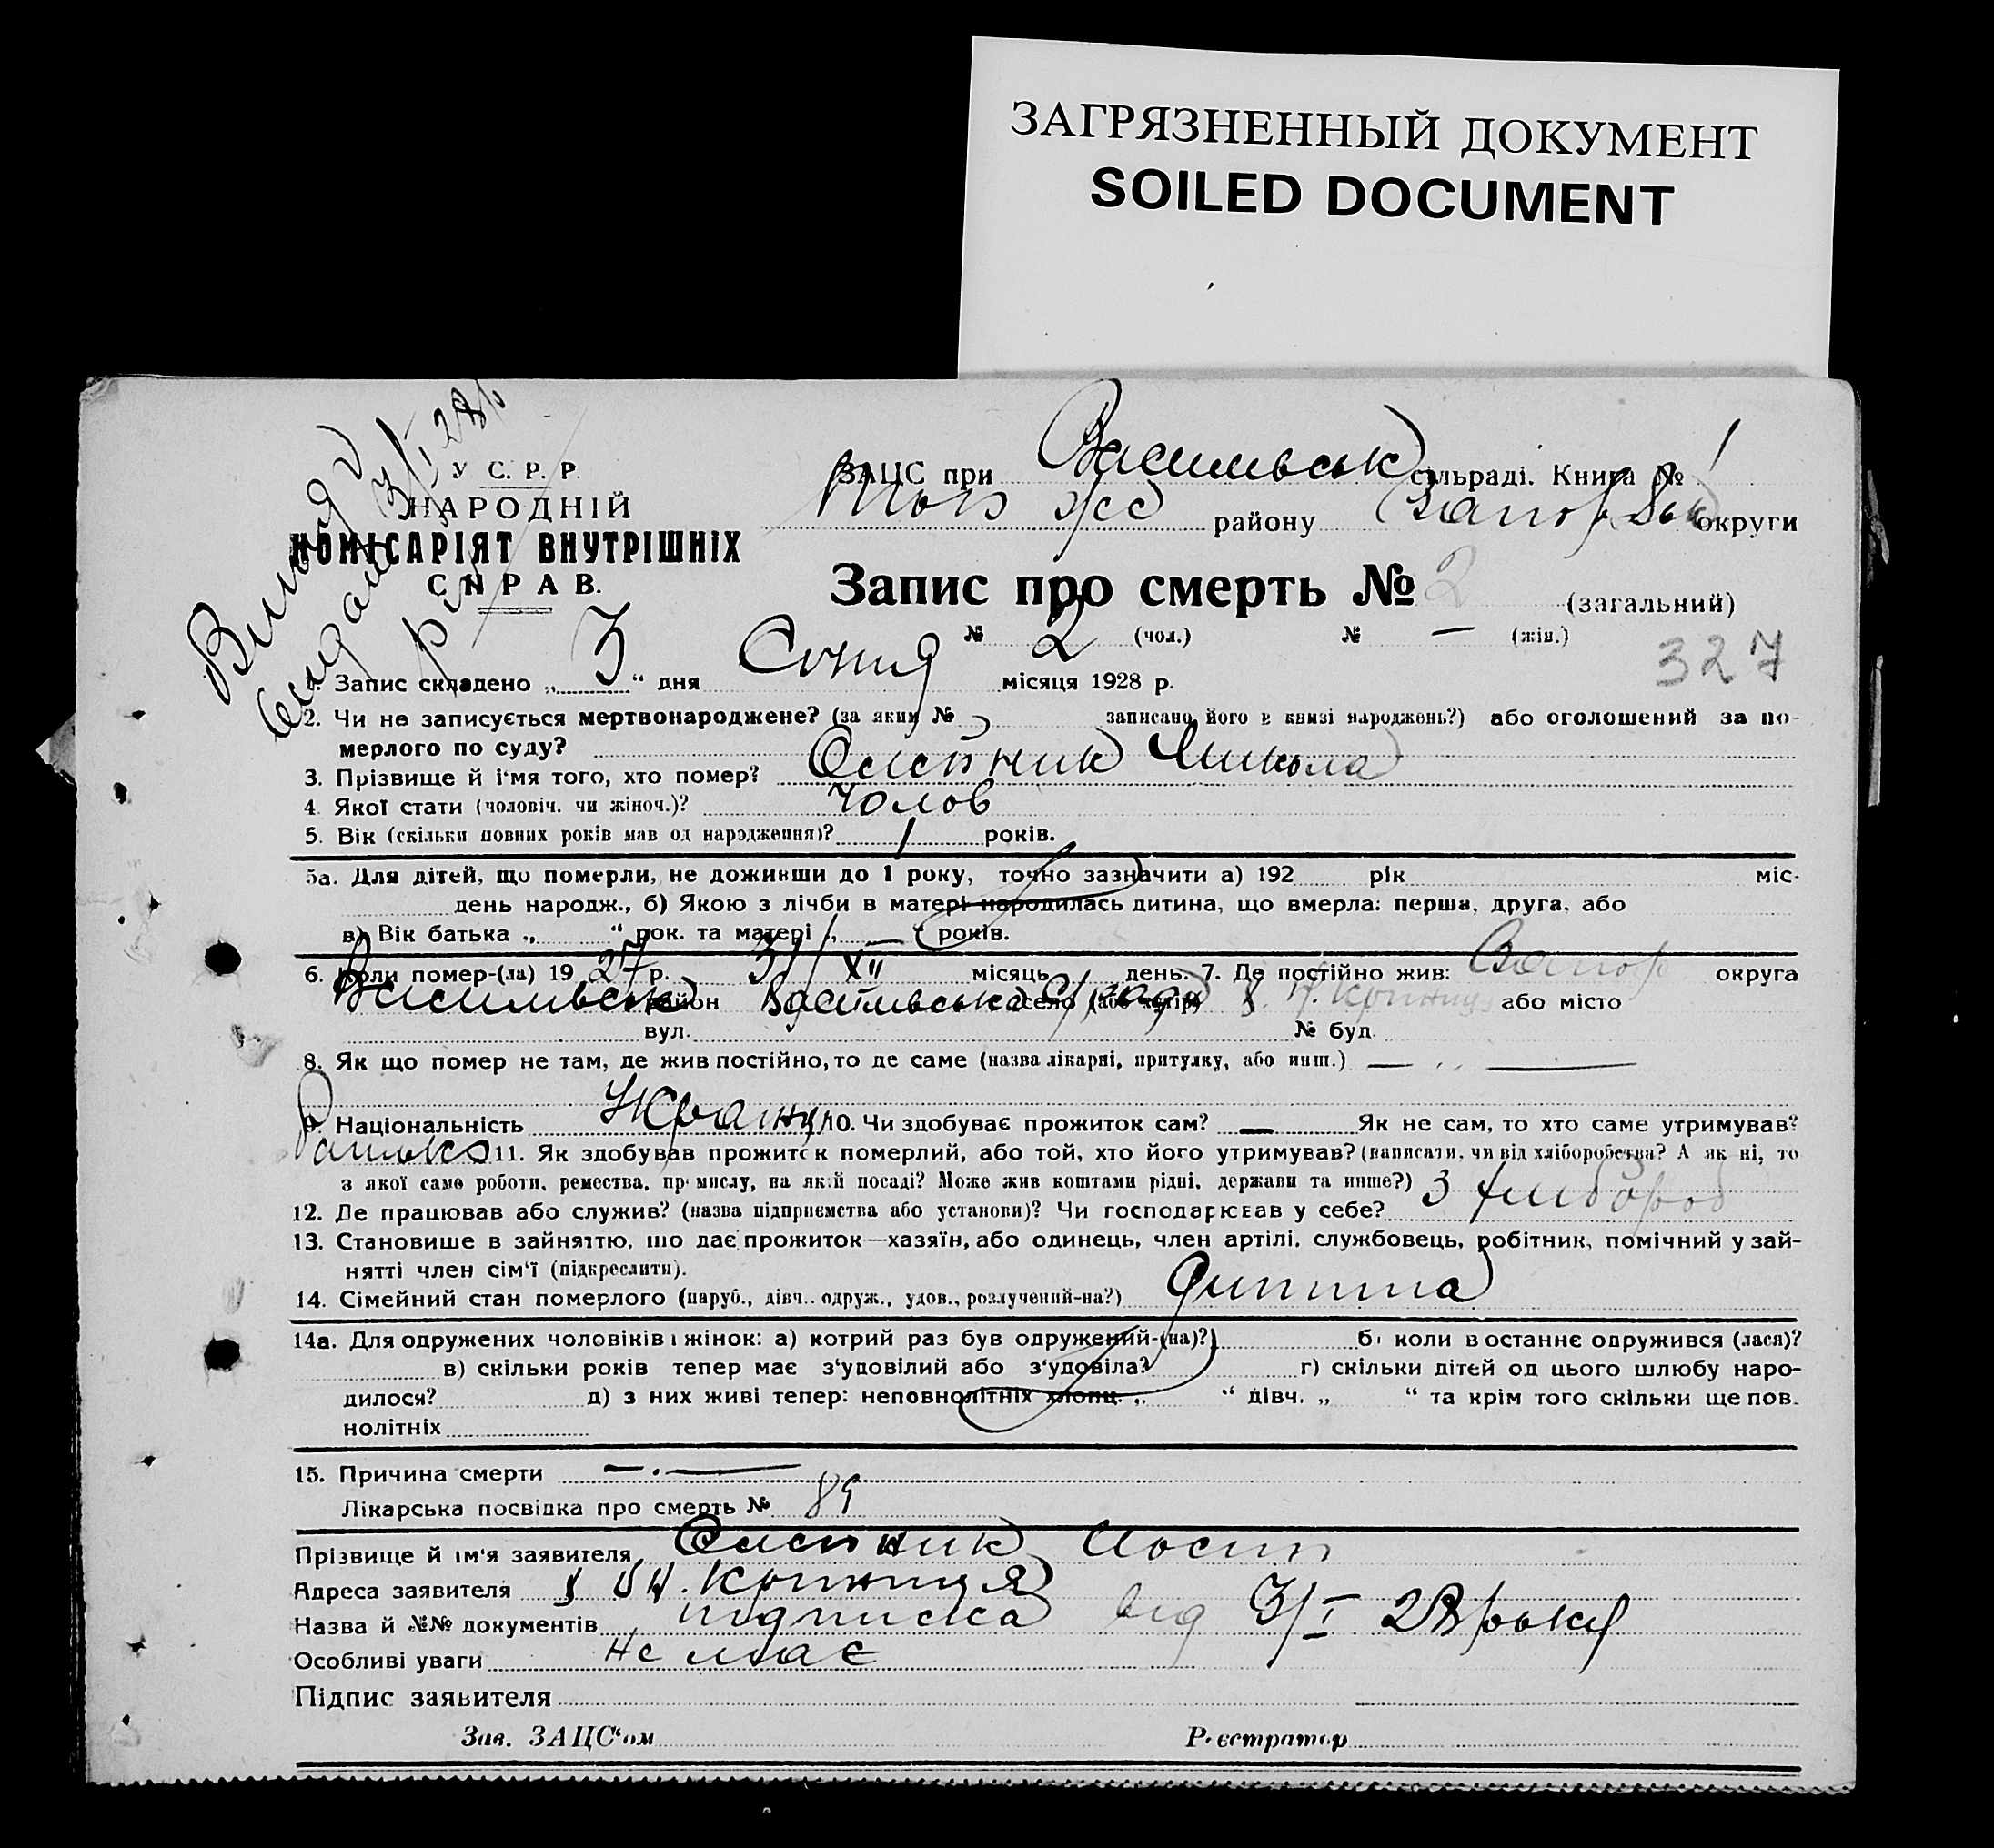 ЗАГРЯЗНЕННЫЙ ДОКУМЕНТ
SOILED DOCUMENT
3/I 28
У С. Р. Р.
НАРОДНІЙ
КОМІСАРІЯТ ВНУТРІШНІХ
СПРАВ.
ЗАЦС при Васильвськ сільраді. Книга № 1
району Запор округи
Запис про смерть № 2 (загальний)
№ 2 (чол.) № — (жін.)
327
1. Запис складено „ 3 “ дня Січня місяця 1928 р.
2. Чи не записується мертвонароджене? (за яким № записано його в книзі народжень?) або оголошений за по-
мерлого по суду?
3. Прізвище й ім'я того, хто помер? Олейник Микола
4. Якої стати (чоловіч. чи жіноч.)? Чолов
5. Вік (скільки повних років мав од народження)? 1 років.
5а. Для дітей, що померли, не доживши до 1 року, точно зазначити а) 192 рік міс-
день народж., б) Якою з лічби в матері народилась дитина, що вмерла: перша, друга, або
в) Вік батька „ “ рок. та матері „ — “ років.
6. Коли помер-(ла) 19 27 р. 31/XII місяць день. 7. Де постійно жив: Запор округа
Васильвськ район Васильвська с/рада село (або хутір) Криниця або місто
вул. № буд.
8. Як що помер не там, де жив постійно, то де саме (назва лікарні, притулку, або инш.) —
9. Національність Украінц 10. Чи здобуває прожиток сам? — Як не сам, то хто саме утримував?
Батько 11. Як здобував прожиток померлий, або той, хто його утримував? (написати, чи від хліборобства? А як ні, то
з якої саме роботи, ремества, промислу, на якій посаді? Може жив коштами рідні, держави та инше?) З хлібороб
12. Де працював або служив? (назва підприємства або установи)? Чи господарював у себе?
13. Становише в зайняттю, що дає прожиток—хазяїн, або одинець, член артілі, службовець, робітник, помічний у зай-
нятті член сім'ї (підкреслити).
14. Сімейний стан померлого (паруб., дівч.. одруж., удов., розлучений-на?) Дитина
14а. Для одружених чоловіків і жінок: а) котрий раз був одружений-(на)? б) коли востаннє одружився (лася)?
в) скільки років тепер має з'удовілий або з'удовіла? г) скільки дітей од цього шлюбу наро-
дилося? д) з них живі тепер: неповнолітніх хлопц. „ “ дівч. „ “ та крім того скільки ще пов-
нолітніх
15. Причина смерти —
Лікарська посвідка про смерть № 89
Прізвище й ім'я заявителя Олейник Иосип
Адреса заявителя Криниця
Назва й №№ документів підписка від 3/I 28 року
Особливі уваги не має
Підпис заявителя
Зав. ЗАЦС'ом Реєстратор